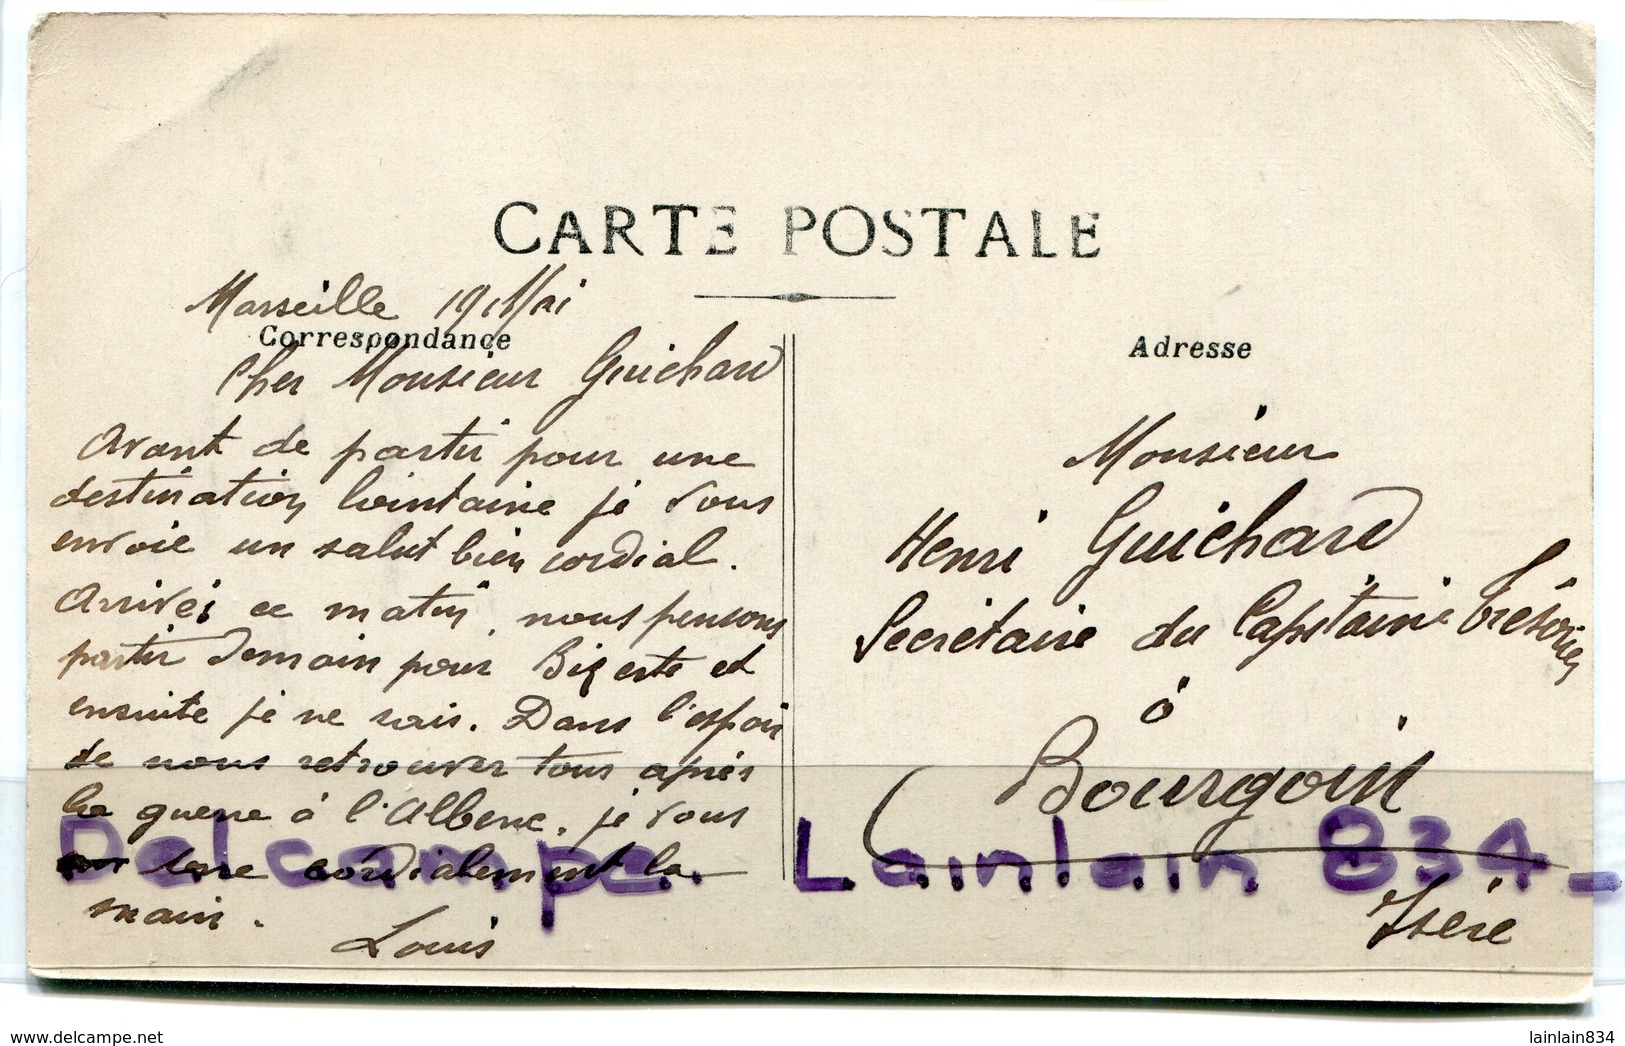 CARTE POSTALE
Marseille 19 Mai
Correspondance
Cher Monsieur Guichard
Avant de partir pour une
destination lointaine je vous
envoie un salut bien cordial.
Arrivés ce matin, nous pensons
partir demain pour Bizerte et
ensuite je ne sais. Dans l'espoir
de nous retrouver tous après
la guerre à l'Albenc, je vous
serre cordialement la
main.
Louis
Adresse
Monsieur
Henri Guichard
Secrétaire du Capitaine trésorier
à
Bourgoin
Isère
Delcampe. Lainlain 834_
www.delcampe.net
lainlain834